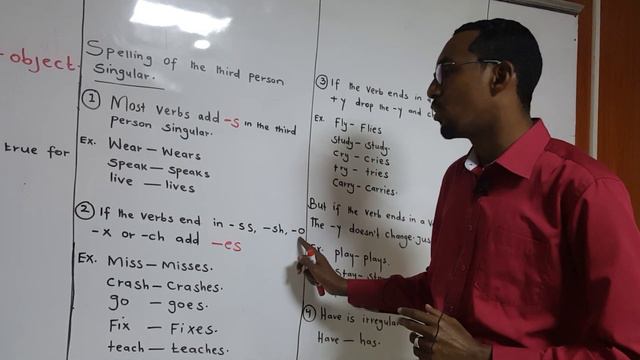 -object.
true for
Spelling of the third person
Singular.
① Most verbs add -s in the third
person singular.
Ex. Wear — Wears
Speak — Speaks
live — lives
② If the verbs end in -ss, -sh, -o
-x or -ch add -es
Ex. Miss — Misses.
Crash — Crashes.
go — goes.
Fix — Fixes.
teach — teaches.
③ If the verb ends in
+y drop the -y and
Ex. Fly - Flies
study - study.
cry - cries
try - tries
Carry - carries.
But if the verb ends in a
The -y doesn't change.
play - plays.
Stay -
④ Have is irregular
Have — has.